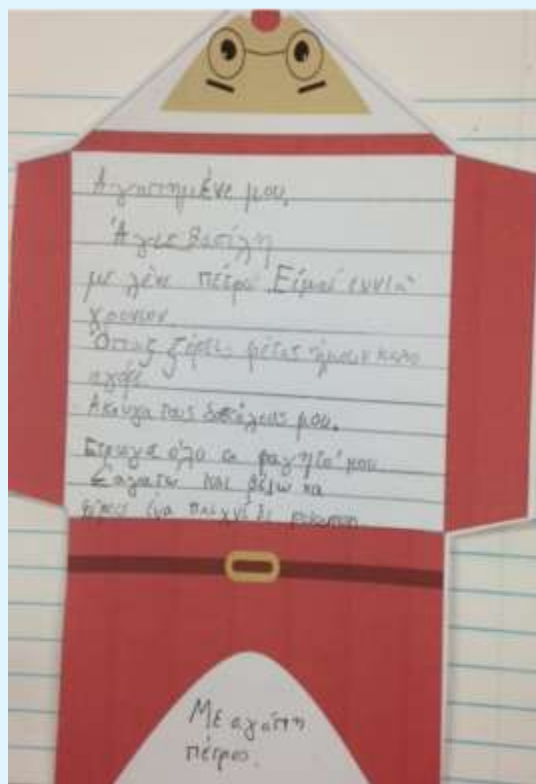 Αγαπημένε μου,
Άγιε Βασίλη
με λένε πέτρο Είμαι εννιά
χρονων.
Όπως ξέρεις φέτος ήμουν καλο
αγόρι
Ακουγα τους δασκάλους μου.
Ετρωγα όλο το φαγητό μου
Σ'αγαπω και θέλω να
φέρεις ένα παιχνίδι
Με αγάπη
πέτρος.